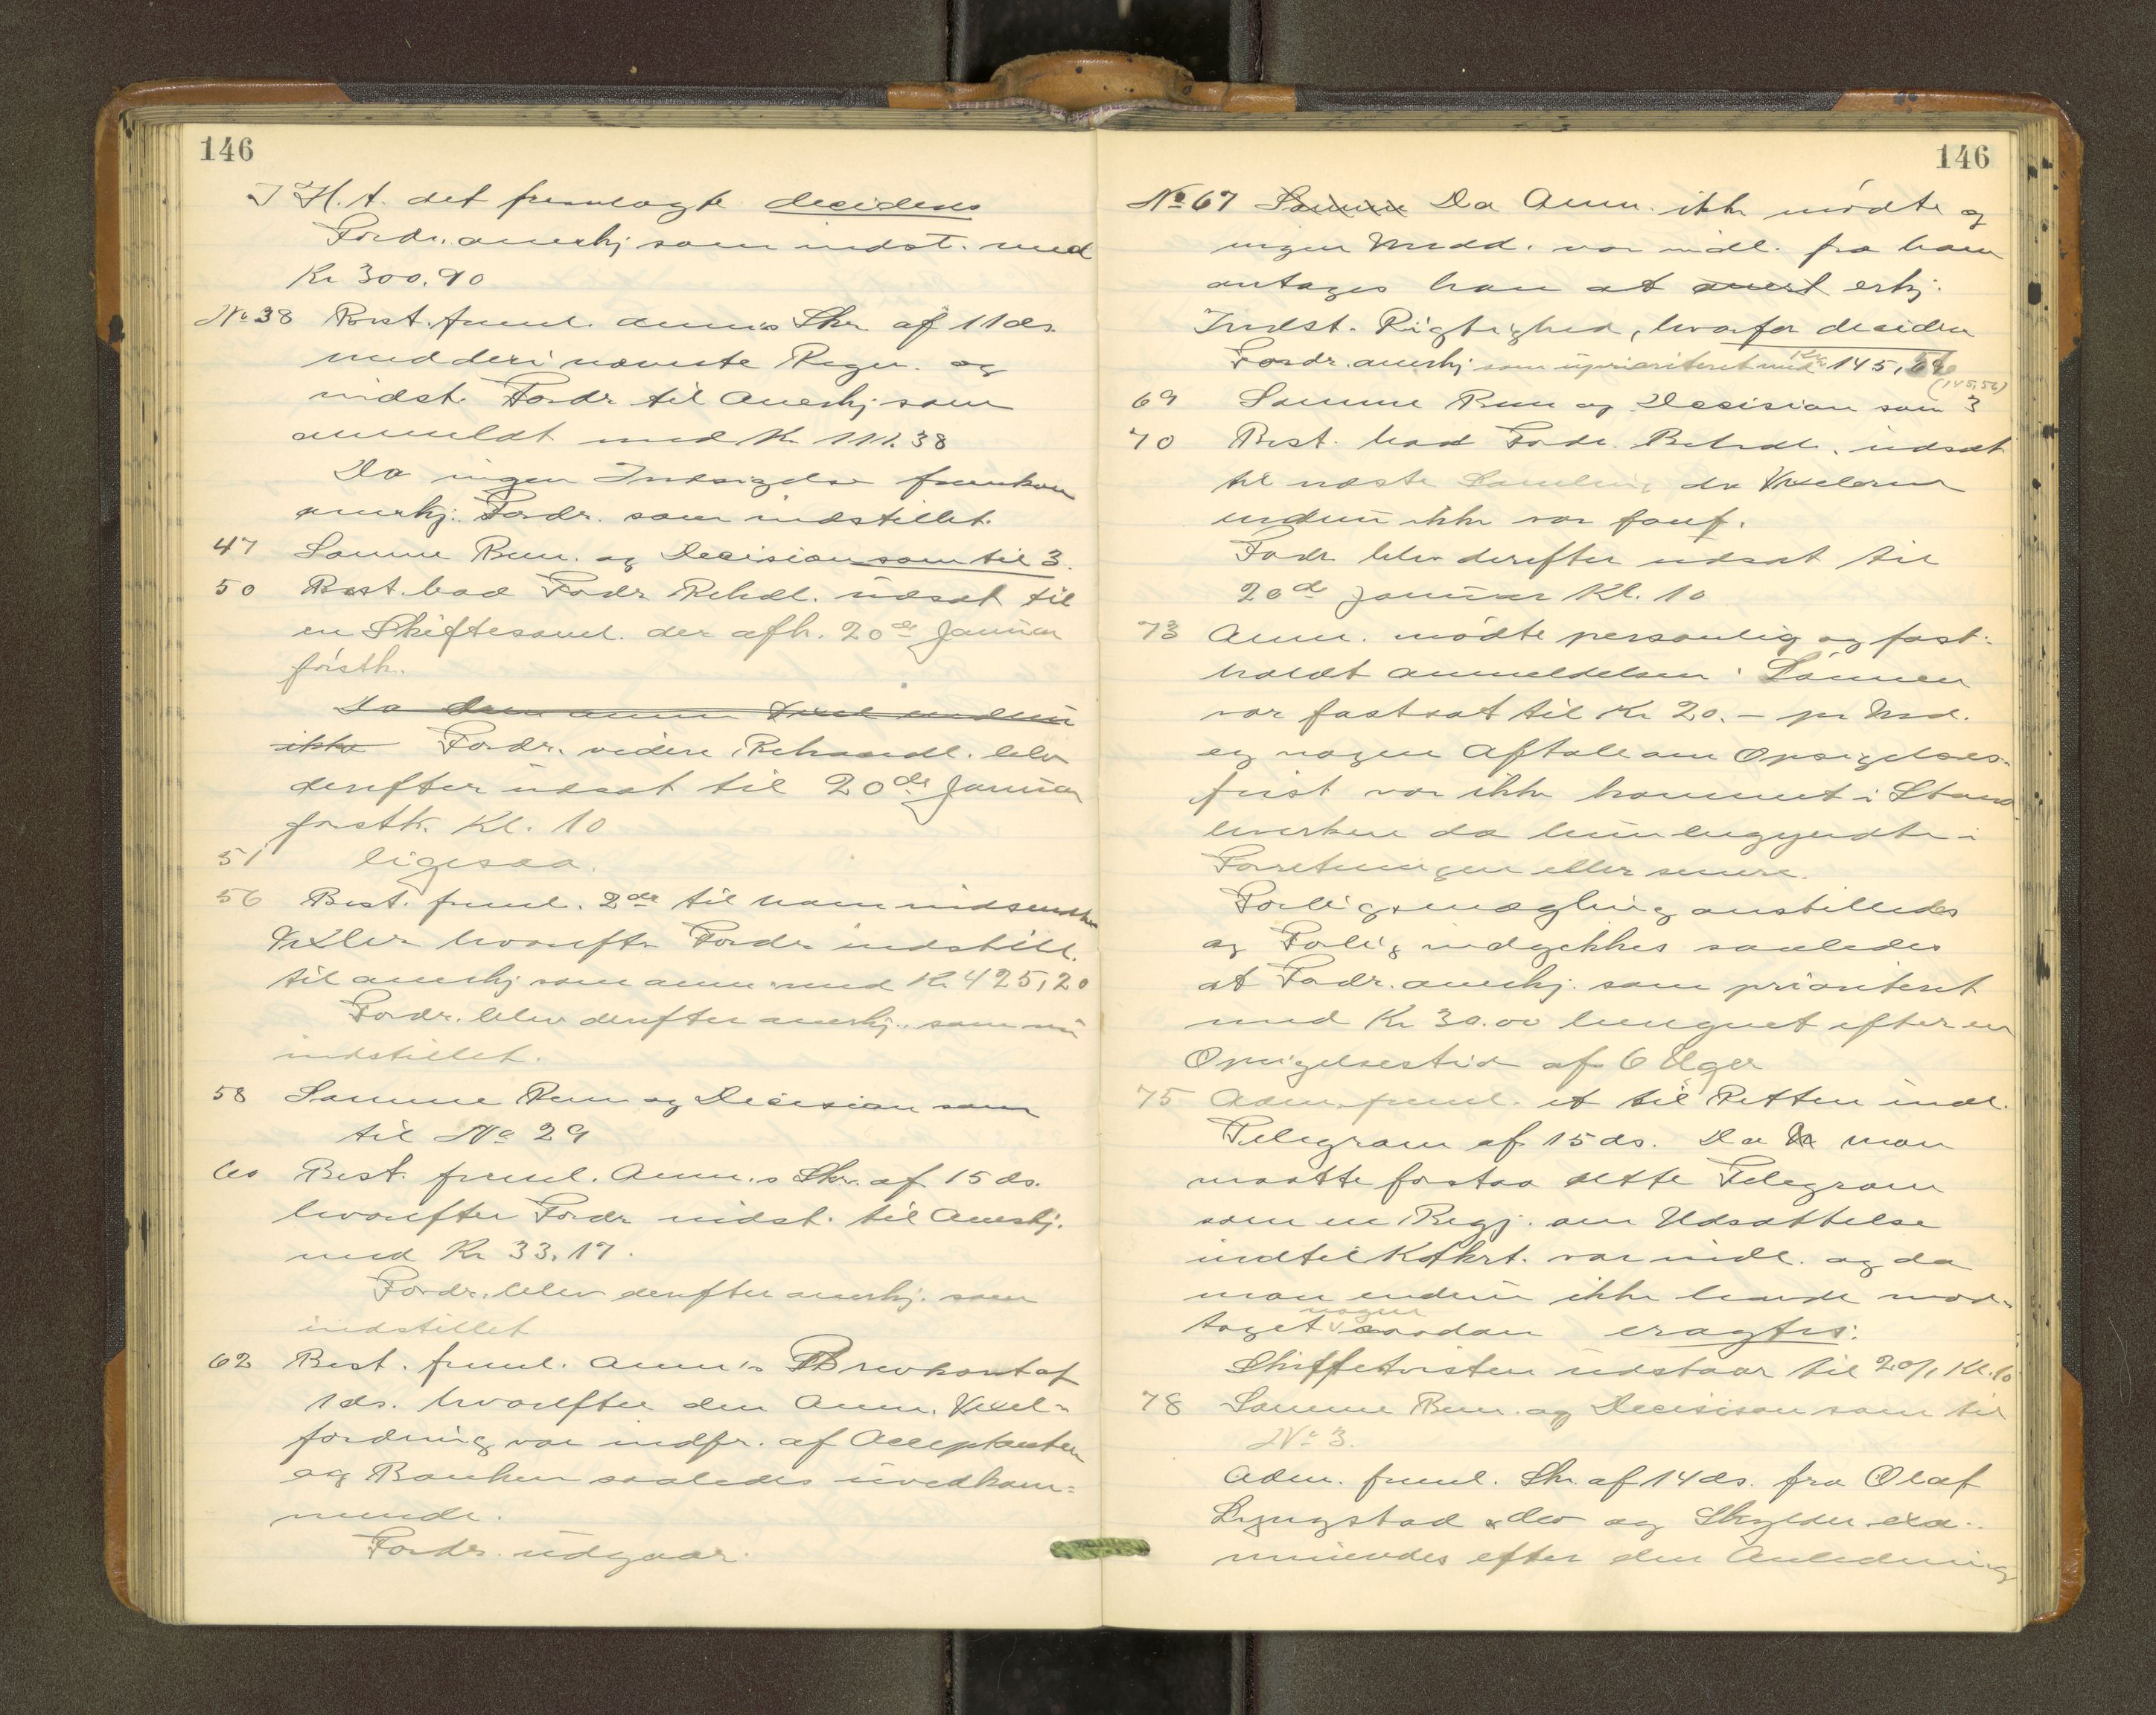 146
I H.t. det fremlagte decideres
Fordr. anerkj som indst. med
Kr 300.90
No 38 Best. freml. anm.s Skr. af 11 ds.
med deri nævnte Regn. og
indst. Fordr til Anerkj som
anmeldt med Kr 111.38
Da ingen Indsigelse fremkom
anerkj. Fordr. som indstillet.
47 Samme Bem. og Decision som til 3.
50 Best. bad Fordr Behdl. udsat til
en Skiftesaml. der afh. 20de Januar
førstk.
Da den anm Vexel endnu
ikke Fordr. videre Behandl. blev
derefter udsat til 20de Januar
førstk. Kl. 10
51 ligesaa.
56 Best. freml. 2de til ham indsendte
Vexler hvorefter Fordr indstill.
til anerkj som anm. med Kr. 425,20
Fordr. blev derefter anerkj. som nu
indstillet.
58 Samme Bem og Decision som
til No 29
60 Best. freml. Anm.s Skr. af 15 ds.
hvorefter Fordr indst. til Anerkj.
med Kr 33.17.
Fordr. blev derefter anerkj. som
indstillet
62 Best. freml. Anm's Brevkort af
1 ds. hvorefter den Anm. Vexel-
fordring var indfr. af Acceptanten
og Banken saaledes uvedkom=
mende.
Fordr. udgaar.
146
No 67 Samme Da Anm. ikke mødte og
ingen Medd. var indl. fra ham
antages han at erkj.
Indst. Rigtighed, hvorfor decideres
Fordr. anerkj som uprioriteret med Kr 145,56
(145,56)
69 Samme Bem og Decision som 3
70 Best. bad Fordr. Behdl. udsat
til næste Samling da Vexelerne
endnu ikke var
Fordr blev derefter udsat til
20de Januar Kl. 10
73 Anm. mødte personlig og fast-
holdt anmeldelsen. Lønnen
var fastsat til Kr 20.- pr Md.
og nogen Aftale om Opsigelses-
frist var ikke kommet i Stand
hverken da hun begyndte i
Forretningen eller senere.
Forligsmægling anstilledes
og Forlig indgikkes saaledes
at Fordr. anerkj. som prioriteret
med Kr 30.00 beregnet efter en
Opsigelsestid af 6 Uger
75 Adm. freml. et til Retten indl.
Telegram af 15 ds. Da man
maatte forstaa dette Telegram
som en Begj. om Udsættelse
indtil var indl. og da
man endnu ikke havde mod-
taget nogen saadan eragtes:
Skiftetvisten udstaar til 20/1 Kl. 10
78 Samme Bem. og Decision som til
No 3.
Adm. freml. Skr. af 14 ds. fra Olaf
Lyngstad & Co og Skylder exa-
mineredes efter den Anledning